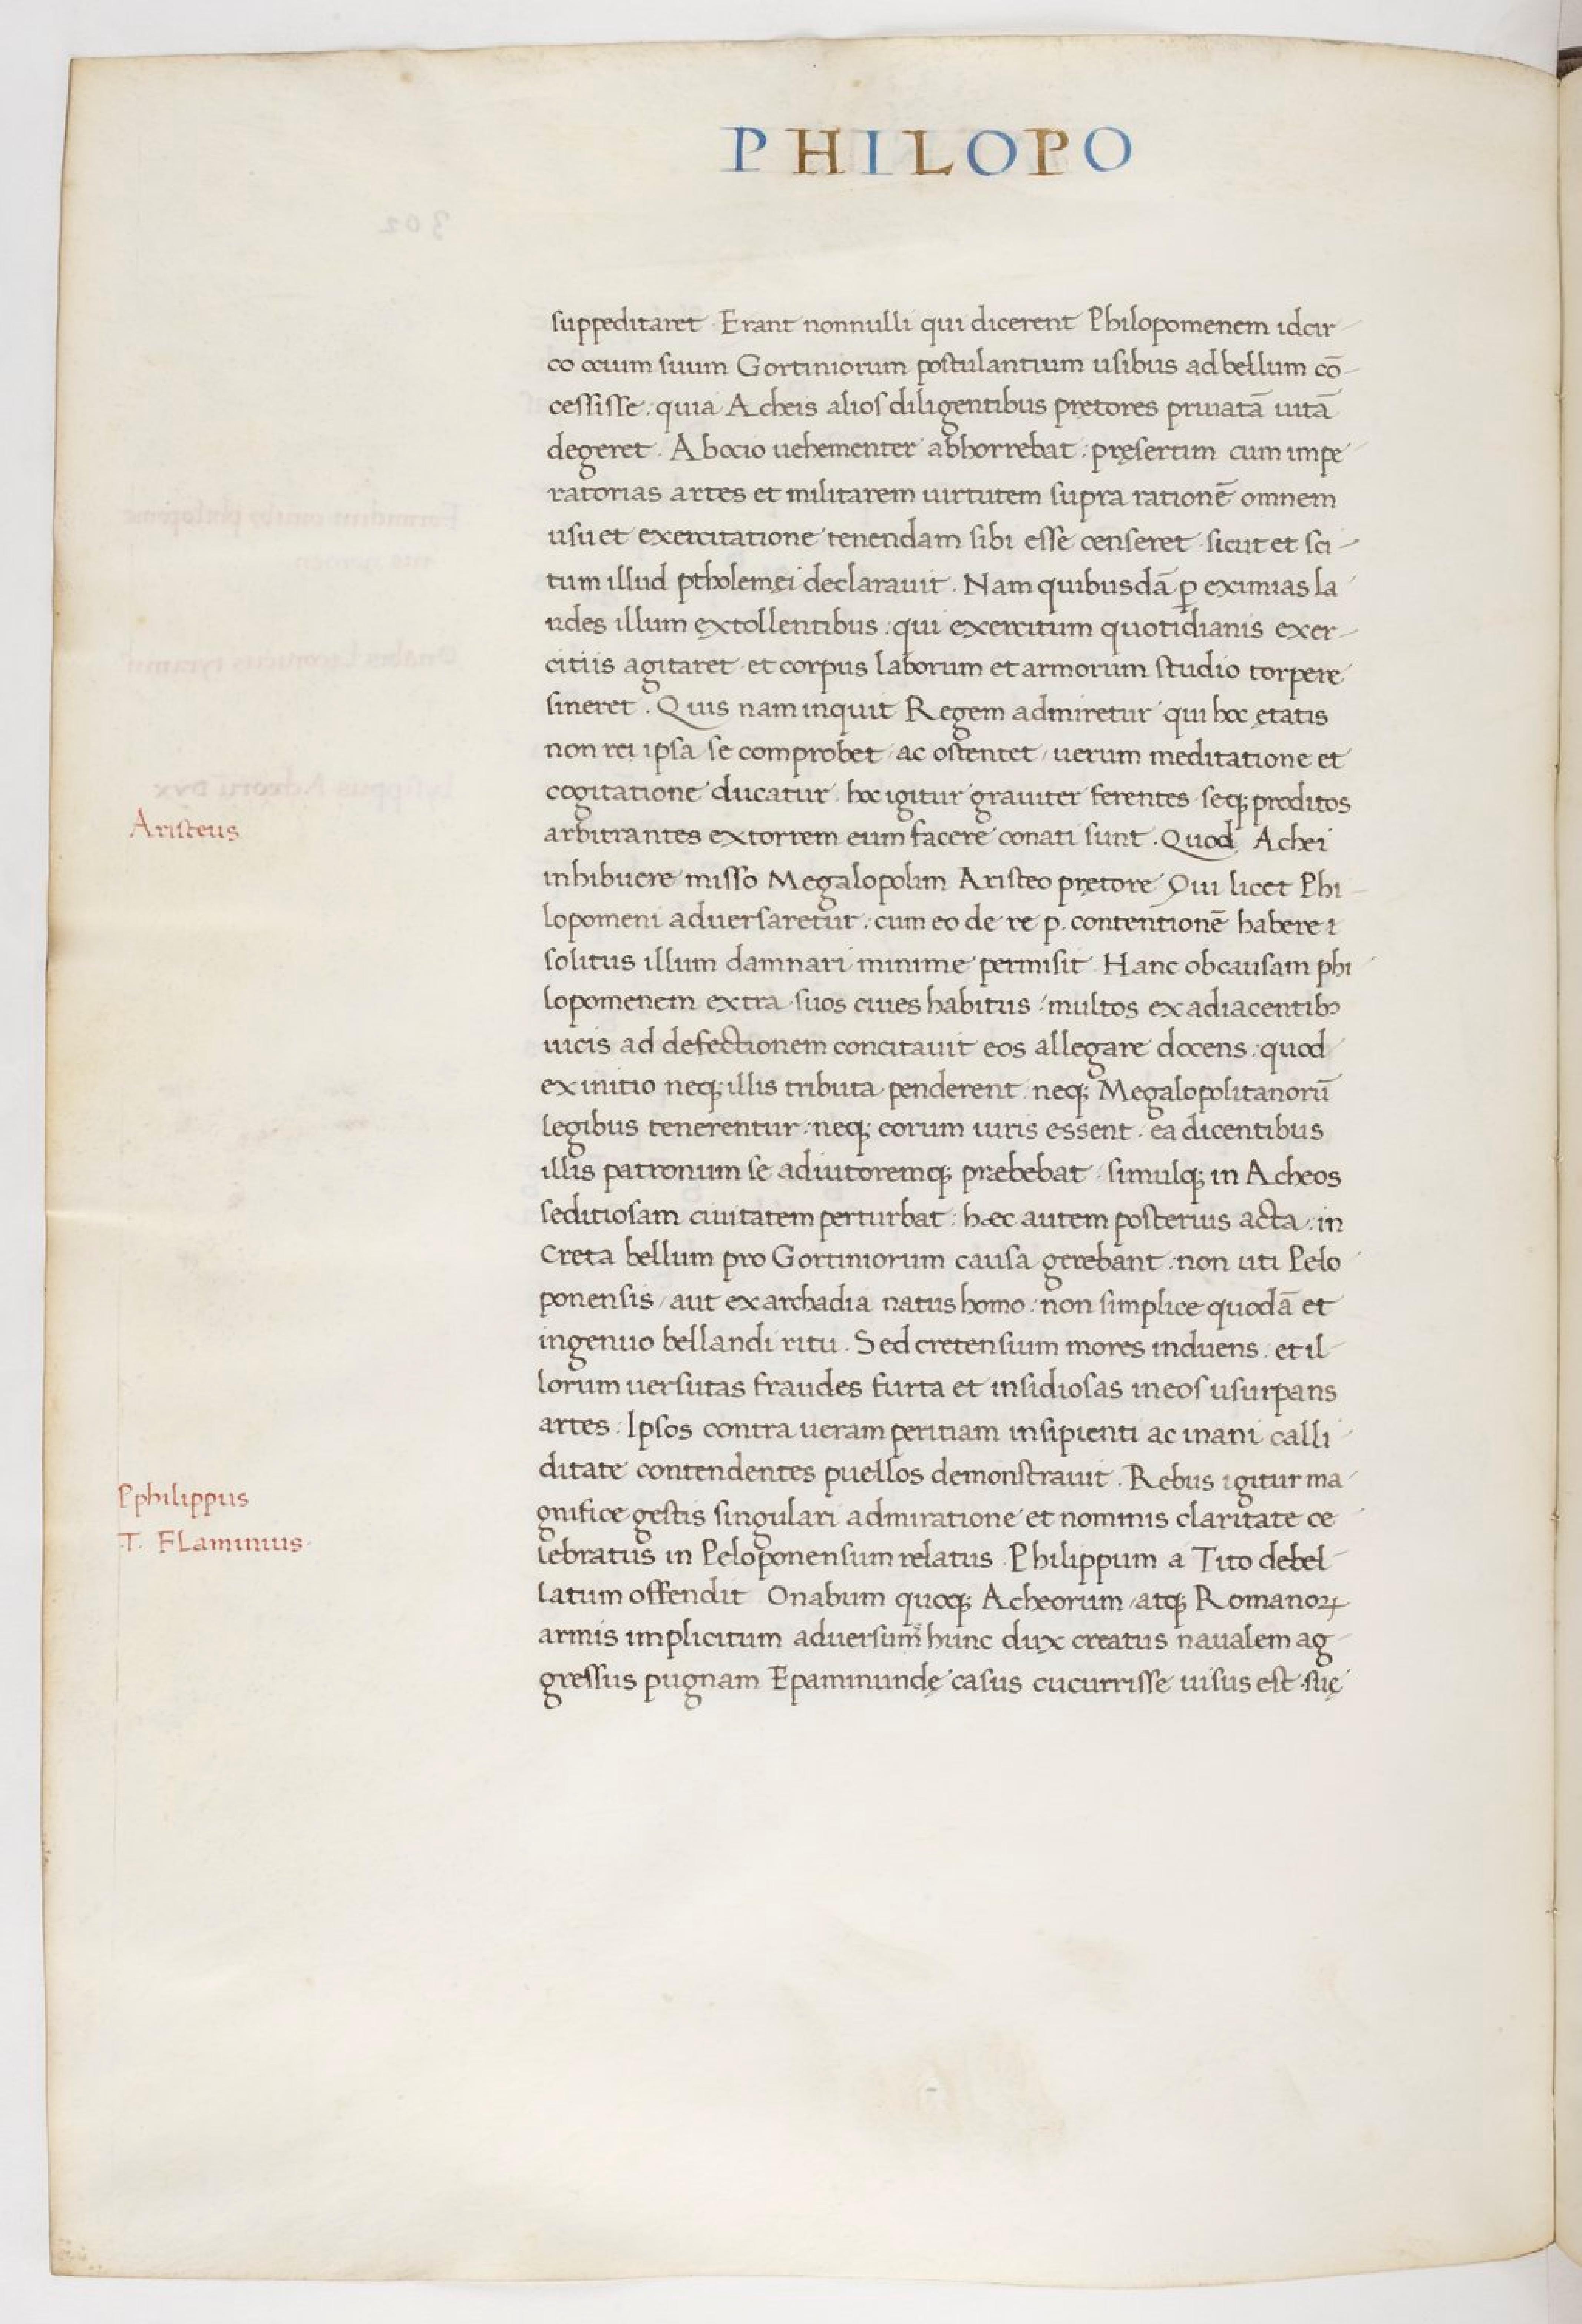 PHILOPO
suppeditaret Erant nonnulli qui dicerent Philopomenem idcir
co ocium suum Gortiniorum postulantium usibus ad bellum cō
cessisse: quia Acheis alios diligentibus pretores priuatā uitā
degeret. Ab ocio uehementer abhorrebat: pręsertim cum impe
ratorias artes et militarem uirtutem supra rationē omnem
usu et exercitatione tenendam sibi esse censeret sicut et sci
tum illud ptholemęi declarauit. Nam quibusdā ꝑ eximias la
udes illum extollentibus: qui exercitum quotidianis exer
citiis agitaret et corpus laborum et armorum studio torpere
sineret. Quis nam inquit Regem admiretur qui hoc ętatis
non rei ipsa se comprobet ac ostentet, uerum meditatione et
cogitatione ducatur. hoc igitur grauiter ferentes seq; proditos
Aristeus
arbitrantes extorrem eum facere conati sunt. Quod Achei
inhibuere misso Megalopolim Aristeo pretore Qui licet Phi
lopomeni aduersaretur: cum eo de re p. contentionē habere i
solitus illum damnari minime permisit Hanc ob causam phi
lopomenem extra suos ciues habitus: multos ex adiacentibꝫ
uicis ad defectionem concitauit eos allegare docens: quod
ex initio neq; illis tributa penderent neq; Megalopolitanorū
legibus tenerentur: neq; eorum iuris essent. ea dicentibus
illis patronum se adiutoremq; præbebat simulq; in Acheos
seditiosam ciuitatem perturbat: hæc autem posterius acta: in
Creta bellum pro Gortiniorum causa gerebant: non uti Pelo
ponensis, aut ex archadia natus homo: non simplice quodā et
ingenuo bellandi ritu. Sed cretensium mores induens: et il
lorum uersutas fraudes furta et insidiosas in eos usurpans
artes: Ipsos contra ueram peritiam insipienti ac inani calli
ditate contendentes puellos demonstrauit. Rebus igitur ma
Pphilippus
gnifice gestis singulari admiratione et nominis claritate ce
T. Flaminius
lebratus in Peloponensum relatus. Philippum a Tito debel
latum offendit Onabum quoq; Acheorum, atq; Romanoꝝ
armis implicitum aduersum hunc dux creatus naualem ag
gressus pugnam Epaminundę casus cucurrisse uisus est. suę